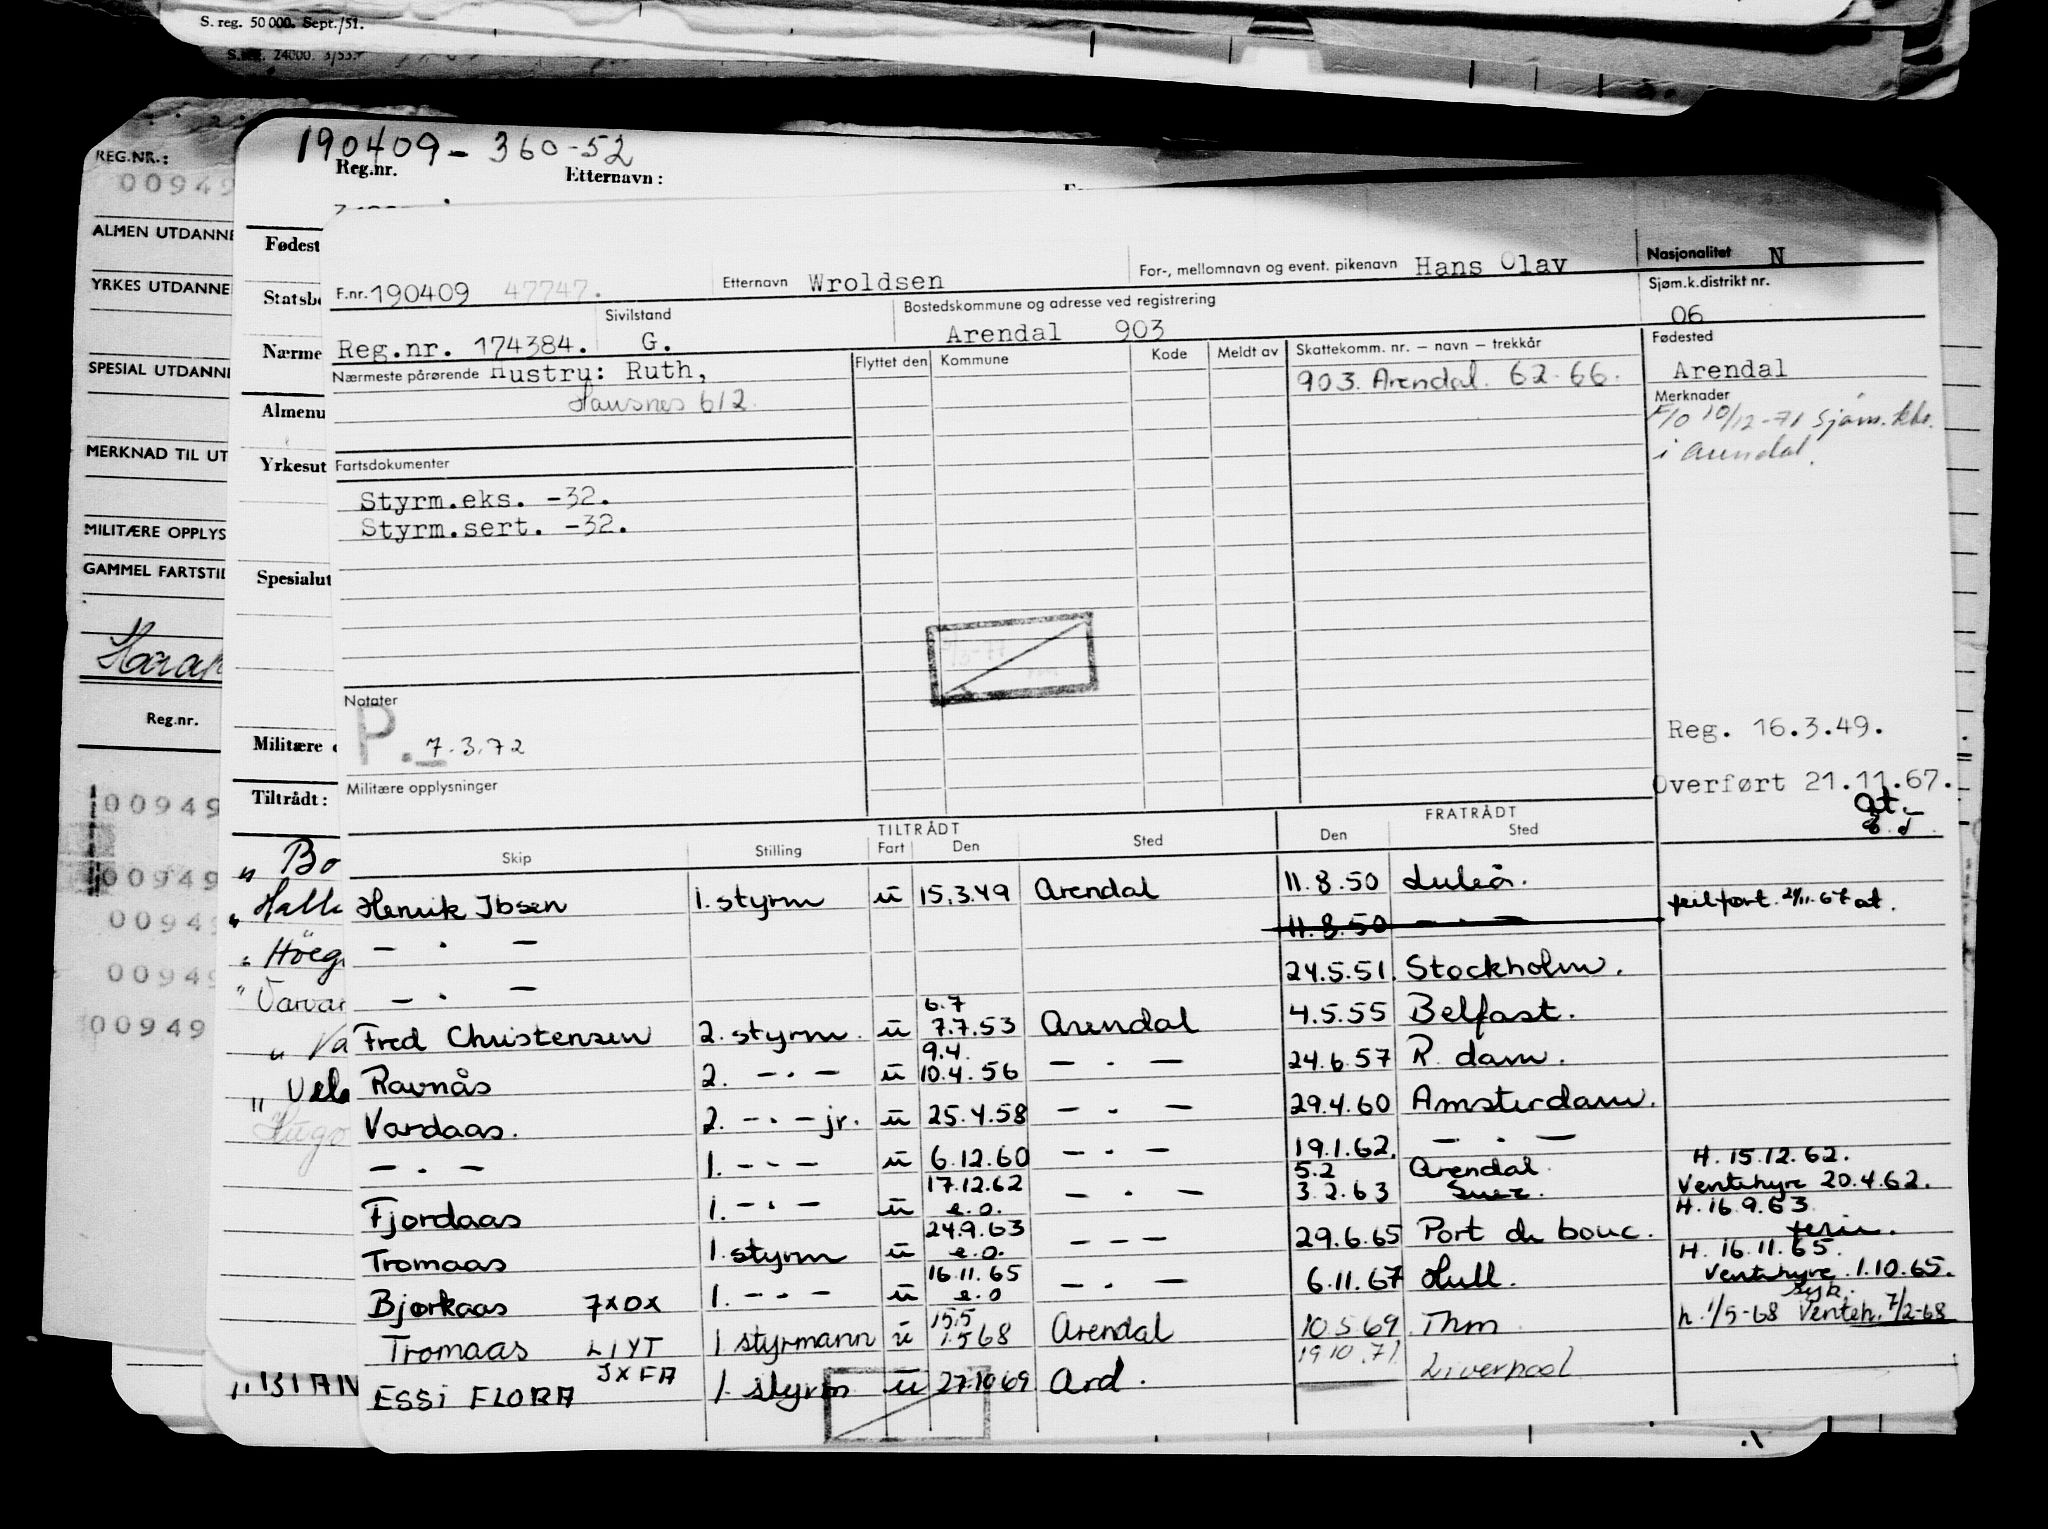 S. reg. 50 000. Sept./51.
S. reg. 24000. 3/53.
REG.NR.:
00949
ALMEN UTDANNE
YRKES UTDANNE
SPESIAL UTDANNE
MERKNAD TIL UT
MILITÆRE OPPLYS
GAMMEL FARTSTID
Reg.nr.
00949
00949
00949
00949
00949
190409 - 360-52
Reg.nr. Etternavn:
Fødest
Statsbo
Nærme
Almenu
Yrkesut
Spesialut
Militære o
Tiltrådt:
" Bo
" Halle
" Höeg
" Varvar
" Va
" Vela
Hugo
F.nr. 190409 47747. Etternavn Wroldsen For-, mellomnavn og event. pikenavn Hans Olav Nasjonalitet N
Reg.nr. 174384. Sivilstand G. Bostedskommune og adresse ved registrering Arendal 903 Sjøm.k.distrikt nr. 06
Nærmeste pårørende Hustru: Ruth, Flyttet den Kommune Kode Meldt av Skattekomm. nr. – navn – trekkår Fødested
Hausnes 612 903. Arendal. 62-66. Arendal
Merknader
F/O 10/12-71 Sjøm. ktr.
i Arendal.
Fartsdokumenter
Styrm.eks. -32.
Styrm.sert. -32.
Notater
P. 7.3.72
Reg. 16.3.49.
Militære opplysninger
Overført 21.11.67.
at.
TILTRÅDT FRATRÅDT
Skip Stilling Fart Den Sted Den Sted
Henrik Ibsen 1. styrm ū 15.3.49 Arendal 11.8.50 Luleå.
— · — 11.8.50 — · — feilført. 21/11.67 at.
— · — 24.5.51. Stockholm.
Fred Christensen 2. styrm. ū 6.7 7.7.53 Arendal 4.5.55 Belfast.
Ravnås 2. — · — ū 9.4. 10.4.56 — · — 24.6.57 R. dam.
Vardaas. 2. — · — jr. ū 25.4.58 — · — 29.4.60 Amsterdam.
— · — 1. — · — ū 6.12.60 — · — 19.1.62. — · — H. 15.12.62.
Fjordaas 1. — · — ū 17.12.62 e.o. — · — 5.2 3.2.63 Arendal Suez. Ventehyre 20.4.62.
Tromaas 1. styrm ū 24.9.63 e.o. — — — 29.6.65 Port de bouc. H. 16.9.63 ferie.
Bjørkaas 7XOX 1. — · — ū 16.11.65 e.o — · — 6.11.67 Hull. H. 16.11.65. Ventehyre 1.10.65.
Tromaas LIYT 1 styrmann ū 15.5 1.5 68 Arendal 10.5 69 Thm. h. 1/5-68 Venteh. 7/2-68
ESSI FLORA JXFA 1. styrm ū 27.10 69 Ard. 19 10.71. Liverpool